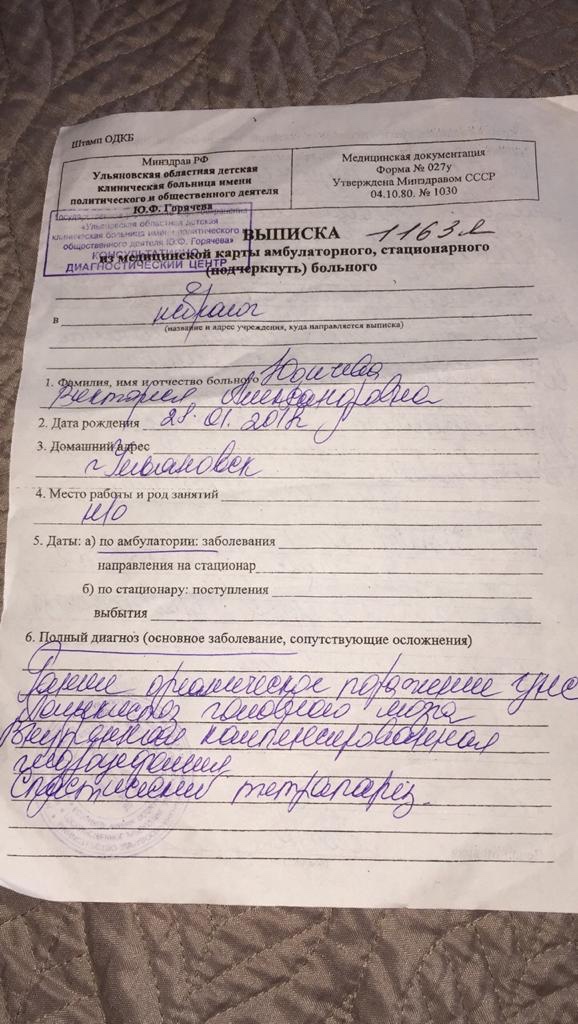 Штамп ОДКБ
Минздрав РФ
Ульяновская областная детская
клиническая больница имени
политического и общественного деятеля
Ю.Ф. Горячева
Медицинская документация
Форма № 027у
Утверждена Минздравом СССР
04.10.80. № 1030
«Ульяновская областная детская
клиническая больница имени политического и
общественного деятеля Ю.Ф. Горячева»
КОНСУЛЬТАТИВНО-
ДИАГНОСТИЧЕСКИЙ ЦЕНТР
ВЫПИСКА 1163л
из медицинской карты амбулаторного, стационарного
(подчеркнуть) больного
в невролог
(название и адрес учреждения, куда направляется выписка)
1. Фамилия, имя и отчество больного Юдичева
Виктория Александровна
2. Дата рождения 28.01.2012
3. Домашний адрес
г Ульяновск
4. Место работы и род занятий
н/о
5. Даты: а) по амбулатории: заболевания
направления на стационар
б) по стационару: поступления
выбытия
6. Полный диагноз (основное заболевание, сопутствующие осложнения)
Раннее органическое поражение ЦНС
Поликистоз головного мозга
Внутренняя компенсированная
гидроцефалия
Спастический тетрапарез.